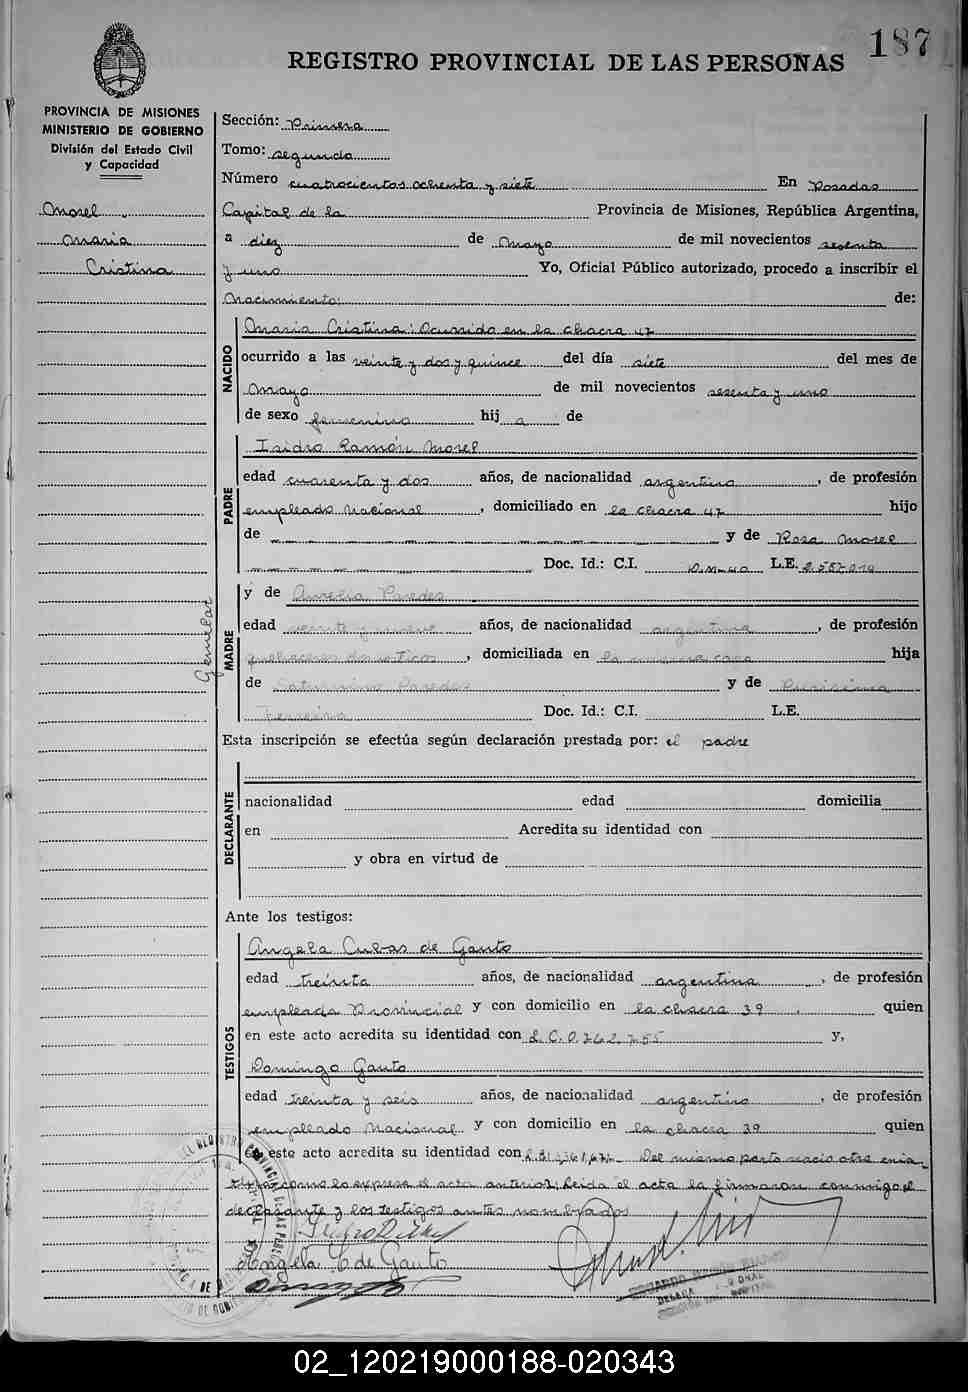 187
REGISTRO PROVINCIAL DE LAS PERSONAS
PROVINCIA DE MISIONES
MINISTERIO DE GOBIERNO
División del Estado Civil
y Capacidad
Morel
Maria
Cristina
Gemelar
Sección: Primera
Tomo: segundo
Número cuatrocientos ochenta y siete En Posadas
Capital de la Provincia de Misiones, República Argentina,
a diez de Mayo de mil novecientos sesenta
y uno Yo, Oficial Público autorizado, procedo a inscribir el
Nacimiento: de:
NACIDO
Maria Cristina: Ocurrido en la chacra 47
ocurrido a las veinte y dos y quince del día siete del mes de
Mayo de mil novecientos sesenta y uno
de sexo femenino hij a de
PADRE
Isidro Ramón Morel
edad cuarenta y dos años, de nacionalidad argentino, de profesión
empleado Nacional, domiciliado en la chacra 47 hijo
de y de Rosa Morel
Doc. Id.: C.I. D.M. 40 L.E.
MADRE
y de Aurelia Paredes
edad veinte y nueve años, de nacionalidad argentina, de profesión
quehaceres domesticos, domiciliada en la misma casa hija
de Saturnino Paredes y de Purisima
Ferreira Doc. Id.: C.I. L.E.
Esta inscripción se efectúa según declaración prestada por: el padre
DECLARANTE
nacionalidad edad domicilia
en Acredita su identidad con
y obra en virtud de
Ante los testigos:
TESTIGOS
Angela Cubas de Gauto
edad treinta años, de nacionalidad argentina, de profesión
empleada Provincial y con domicilio en la chacra 39. quien
en este acto acredita su identidad con L.C. 0.262.755 y,
Domingo Gauto
edad treinta y seis años, de nacionalidad argentino, de profesión
empleado Nacional y con domicilio en la chacra 39 quien
en este acto acredita su identidad con Del mismo parto nacio otra cria-
tura como lo expresa el acta anterior; Leida el acta la firmaron conmigo el
declarante y los testigos antes nombrados
Angela C de Gauto
02_120219000188-020343